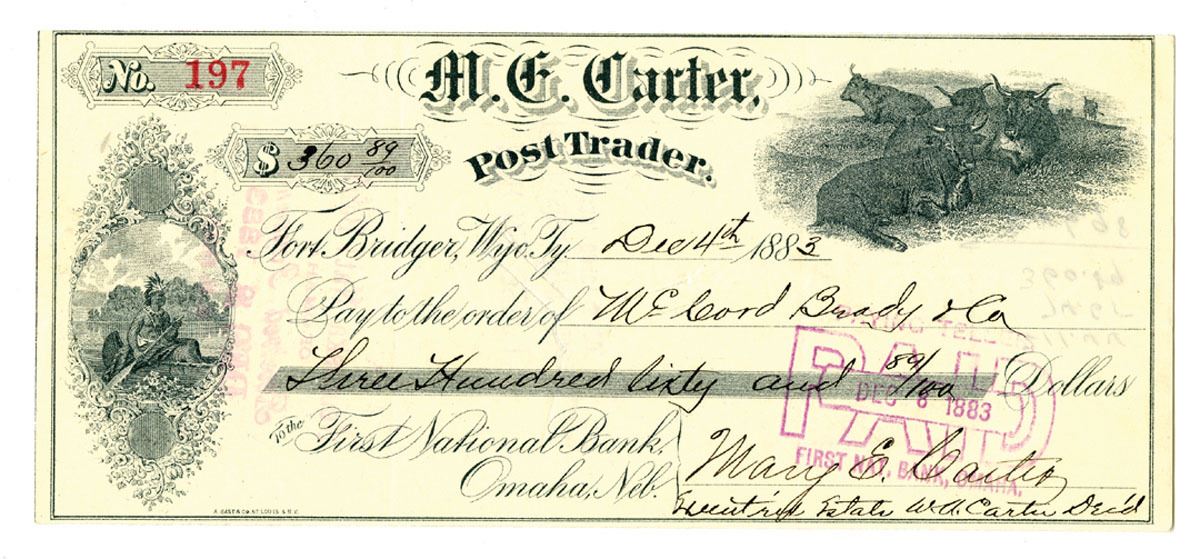 No. 197
M. E. Carter,
Post Trader.
$ 360 89/100
Fort Bridger, Wyo. Ty. Dec 4th 1883
Pay to the order of McCord Brady & Co
Three Hundred Sixty and 89/100 Dollars
To the First National Bank,
Omaha, Neb.
PAYING TELLER
PAID
DEC 8 1883
FIRST NAT. BANK, OMAHA.
Mary E. Carter
Executrix Estate W. A. Carter Dec'd
A. GAST & CO. ST. LOUIS & N.Y.